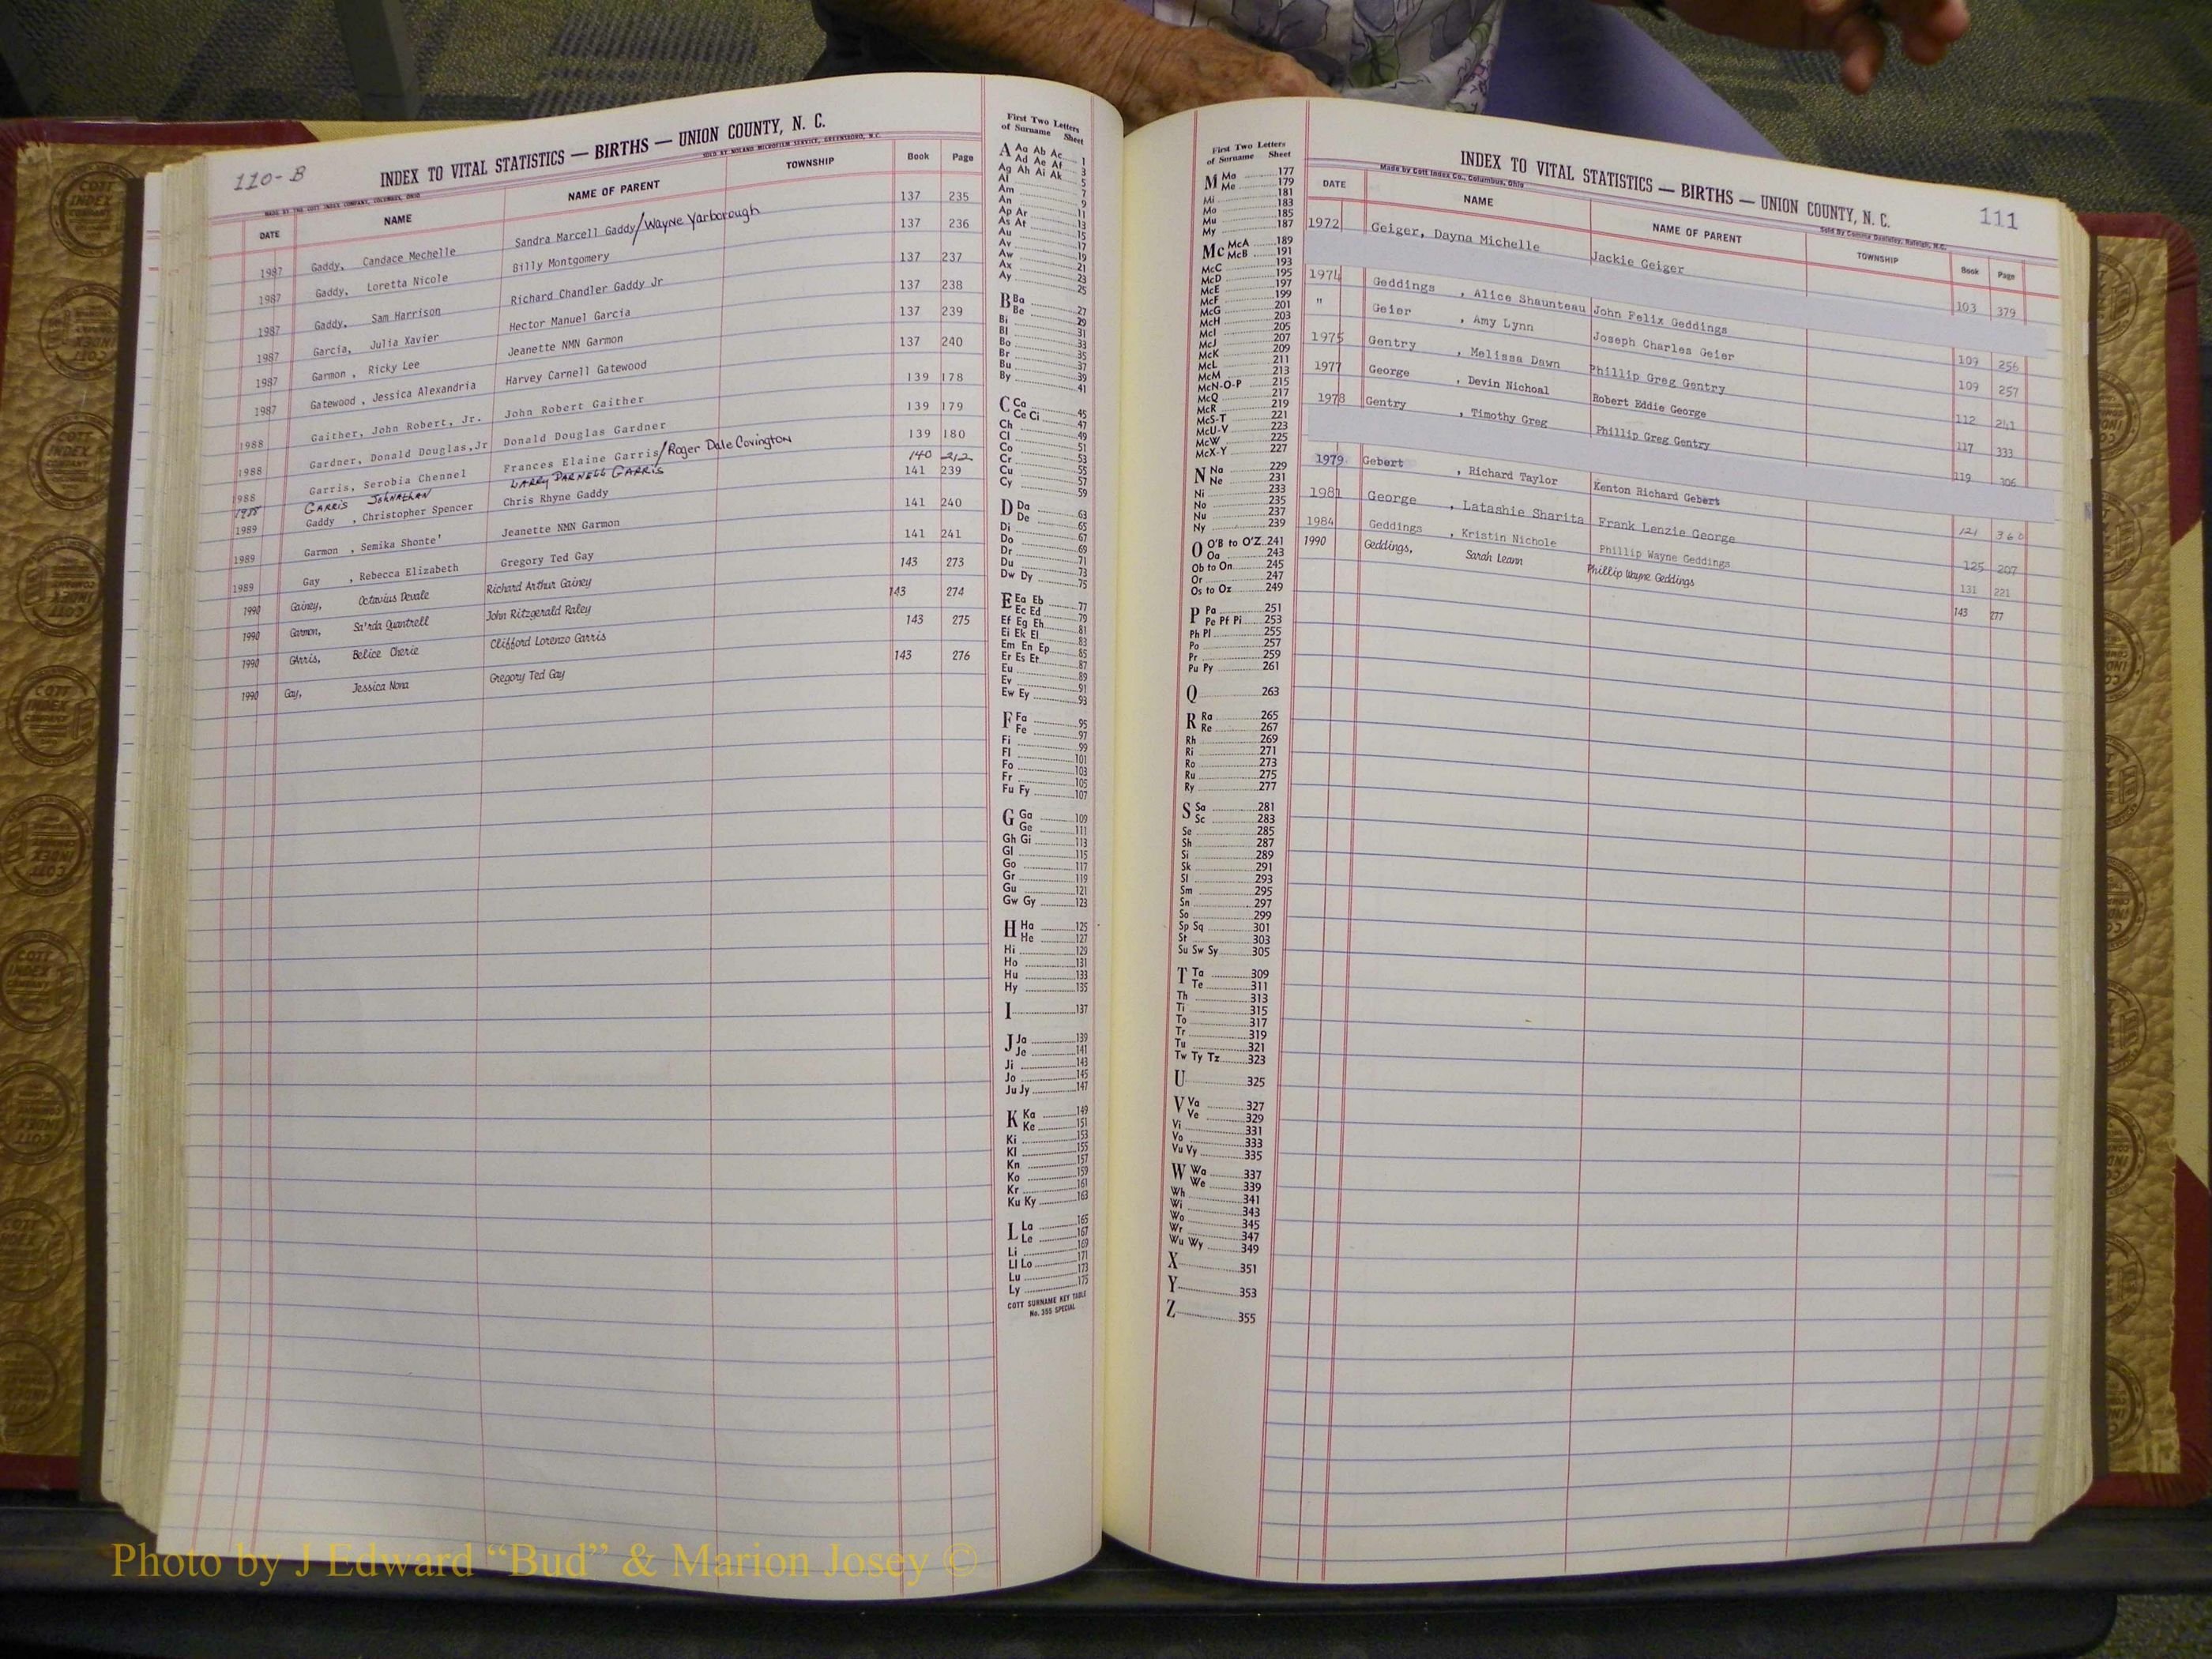 110-B
INDEX TO VITAL STATISTICS — BIRTHS — UNION COUNTY, N. C.
MADE BY THE COTT INDEX COMPANY, COLUMBUS, OHIO SOLD BY NOLAND MICROFILM SERVICE, GREENSBORO, N.C.
DATE NAME NAME OF PARENT TOWNSHIP Book Page
1987 Gaddy, Candace Mechelle Sandra Marcell Gaddy/Wayne Yarborough 137 235
1987 Gaddy, Loretta Nicole Billy Montgomery 137 236
1987 Gaddy, Sam Harrison Richard Chandler Gaddy Jr 137 237
1987 Garcia, Julia Xavier Hector Manuel Garcia 137 238
1987 Garmon, Ricky Lee Jeanette NMN Garmon 137 239
1987 Gatewood, Jessica Alexandria Harvey Carnell Gatewood 137 240
1988 Gaither, John Robert, Jr. John Robert Gaither 139 178
1988 Gardner, Donald Douglas,Jr Donald Douglas Gardner 139 179
1988 Garris, Serobia Chennel Frances Elaine Garris/Roger Dale Covington 139 180
1988 GARRIS JOHNATHAN LARRY DARNELL GARRIS 140 212
1989 Gaddy , Christopher Spencer Chris Rhyne Gaddy 141 239
1989 Garmon , Semika Shonte' Jeanette NMN Garmon 141 240
1989 Gay , Rebecca Elizabeth Gregory Ted Gay 141 241
1990 Gainey, Octavius Devale Richard Arthur Gainey 143 273
1990 Garmon, Sa'rda Quantrell John Ritzgerald Raley 143 274
1990 GArris, Belice Cherie Clifford Lorenzo Garris 143 275
1990 Gay, Jessica Nona Gregory Ted Gay 143 276
First Two Letters
of Surname Sheet
A Aa Ab Ac 1
Ad Ae Af 3
Ag Ah Ai Ak 5
Al 7
Am 9
An 11
Ap Ar 13
As At 15
Au 17
Av 19
Aw 21
Ax 23
Ay 25
B Ba 27
Be 29
Bi 31
Bl 33
Bo 35
Br 37
Bu 39
By 41
C Ca 45
Ce Ci 47
Ch 49
Cl 51
Co 53
Cr 55
Cu 57
Cy 59
D Da 63
De 65
Di 67
Do 69
Dr 71
Du 73
Dw Dy 75
E Ea Eb 77
Ec Ed 79
Ef Eg Eh 81
Ei Ek El 83
Em En Ep 85
Er Es Et 87
Eu 89
Ev 91
Ew Ey 93
F Fa 95
Fe 97
Fi 99
Fl 101
Fo 103
Fr 105
Fu Fy 107
G Ga 109
Ge 111
Gh Gi 113
Gl 115
Go 117
Gr 119
Gu 121
Gw Gy 123
H Ha 125
He 127
Hi 129
Ho 131
Hu 133
Hy 135
I 137
J Ja 139
Je 141
Ji 143
Jo 145
Ju Jy 147
K Ka 149
Ke 151
Ki 153
Kl 155
Kn 157
Ko 159
Kr 161
Ku Ky 163
L La 165
Le 167
Li 169
Ll Lo 171
Lu 173
Ly 175
COTT SURNAME KEY TABLE
No. 355 SPECIAL
First Two Letters
of Surname Sheet
M Ma 177
Me 179
Mi 181
Mo 183
Mu 185
My 187
Mc McA 189
McB 191
McC 193
McD 195
McE 197
McF 199
McG 201
McH 203
McI 205
McJ 207
McK 209
McL 211
McM 213
McN-O-P 215
McQ 217
McR 219
McS-T 221
McU-V 223
McW 225
McX-Y 227
N Na 229
Ne 231
Ni 233
No 235
Nu 237
Ny 239
O O'B to O'Z 241
Oa 243
Ob to On 245
Or 247
Os to Oz 249
P Pa 251
Pe Pf Pi 253
Ph Pl 255
Po 257
Pr 259
Pu Py 261
Q 263
R Ra 265
Re 267
Rh 269
Ri 271
Ro 273
Ru 275
Ry 277
S Sa 281
Sc 283
Se 285
Sh 287
Si 289
Sk 291
Sl 293
Sm 295
Sn 297
So 299
Sp Sq 301
St 303
Su Sw Sy 305
T Ta 309
Te 311
Th 313
Ti 315
To 317
Tr 319
Tu 321
Tw Ty Tz 323
U 325
V Va 327
Ve 329
Vi 331
Vo 333
Vu Vy 335
W Wa 337
We 339
Wh 341
Wi 343
Wo 345
Wr 347
Wu Wy 349
X 351
Y 353
Z 355
111
INDEX TO VITAL STATISTICS — BIRTHS — UNION COUNTY, N. C.
Made by Cott Index Co., Columbus, Ohio Sold By Raleigh, N.C.
DATE NAME NAME OF PARENT TOWNSHIP Book Page
1972 Geiger, Dayna Michelle Jackie Geiger 103 379
1974 Geddings , Alice Shaunteau John Felix Geddings 109 256
" Geier , Amy Lynn Joseph Charles Geier 109 257
1975 Gentry , Melissa Dawn Phillip Greg Gentry 112 241
1977 George , Devin Nichoal Robert Eddie George 117 333
1978 Gentry , Timothy Greg Phillip Greg Gentry 119 306
1979 Gebert , Richard Taylor Kenton Richard Gebert 121 360
1981 George , Latashie Sharita Frank Lenzie George 125 207
1984 Geddings , Kristin Nichole Phillip Wayne Geddings 131 221
1990 Geddings, Sarah Leann Phillip Wayne Geddings 143 277
COTT
INDEX
COMPANY
Photo by J Edward “Bud” & Marion Josey ©